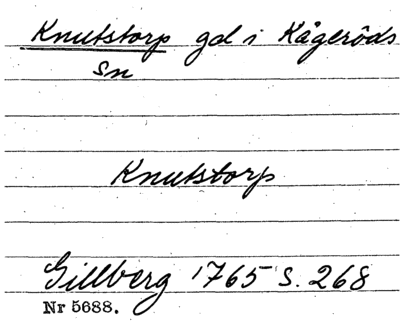 Knutstorp gd i Kågeröds
sn
Knutstorp
Gillberg 1765 S. 268
Nr 5688.